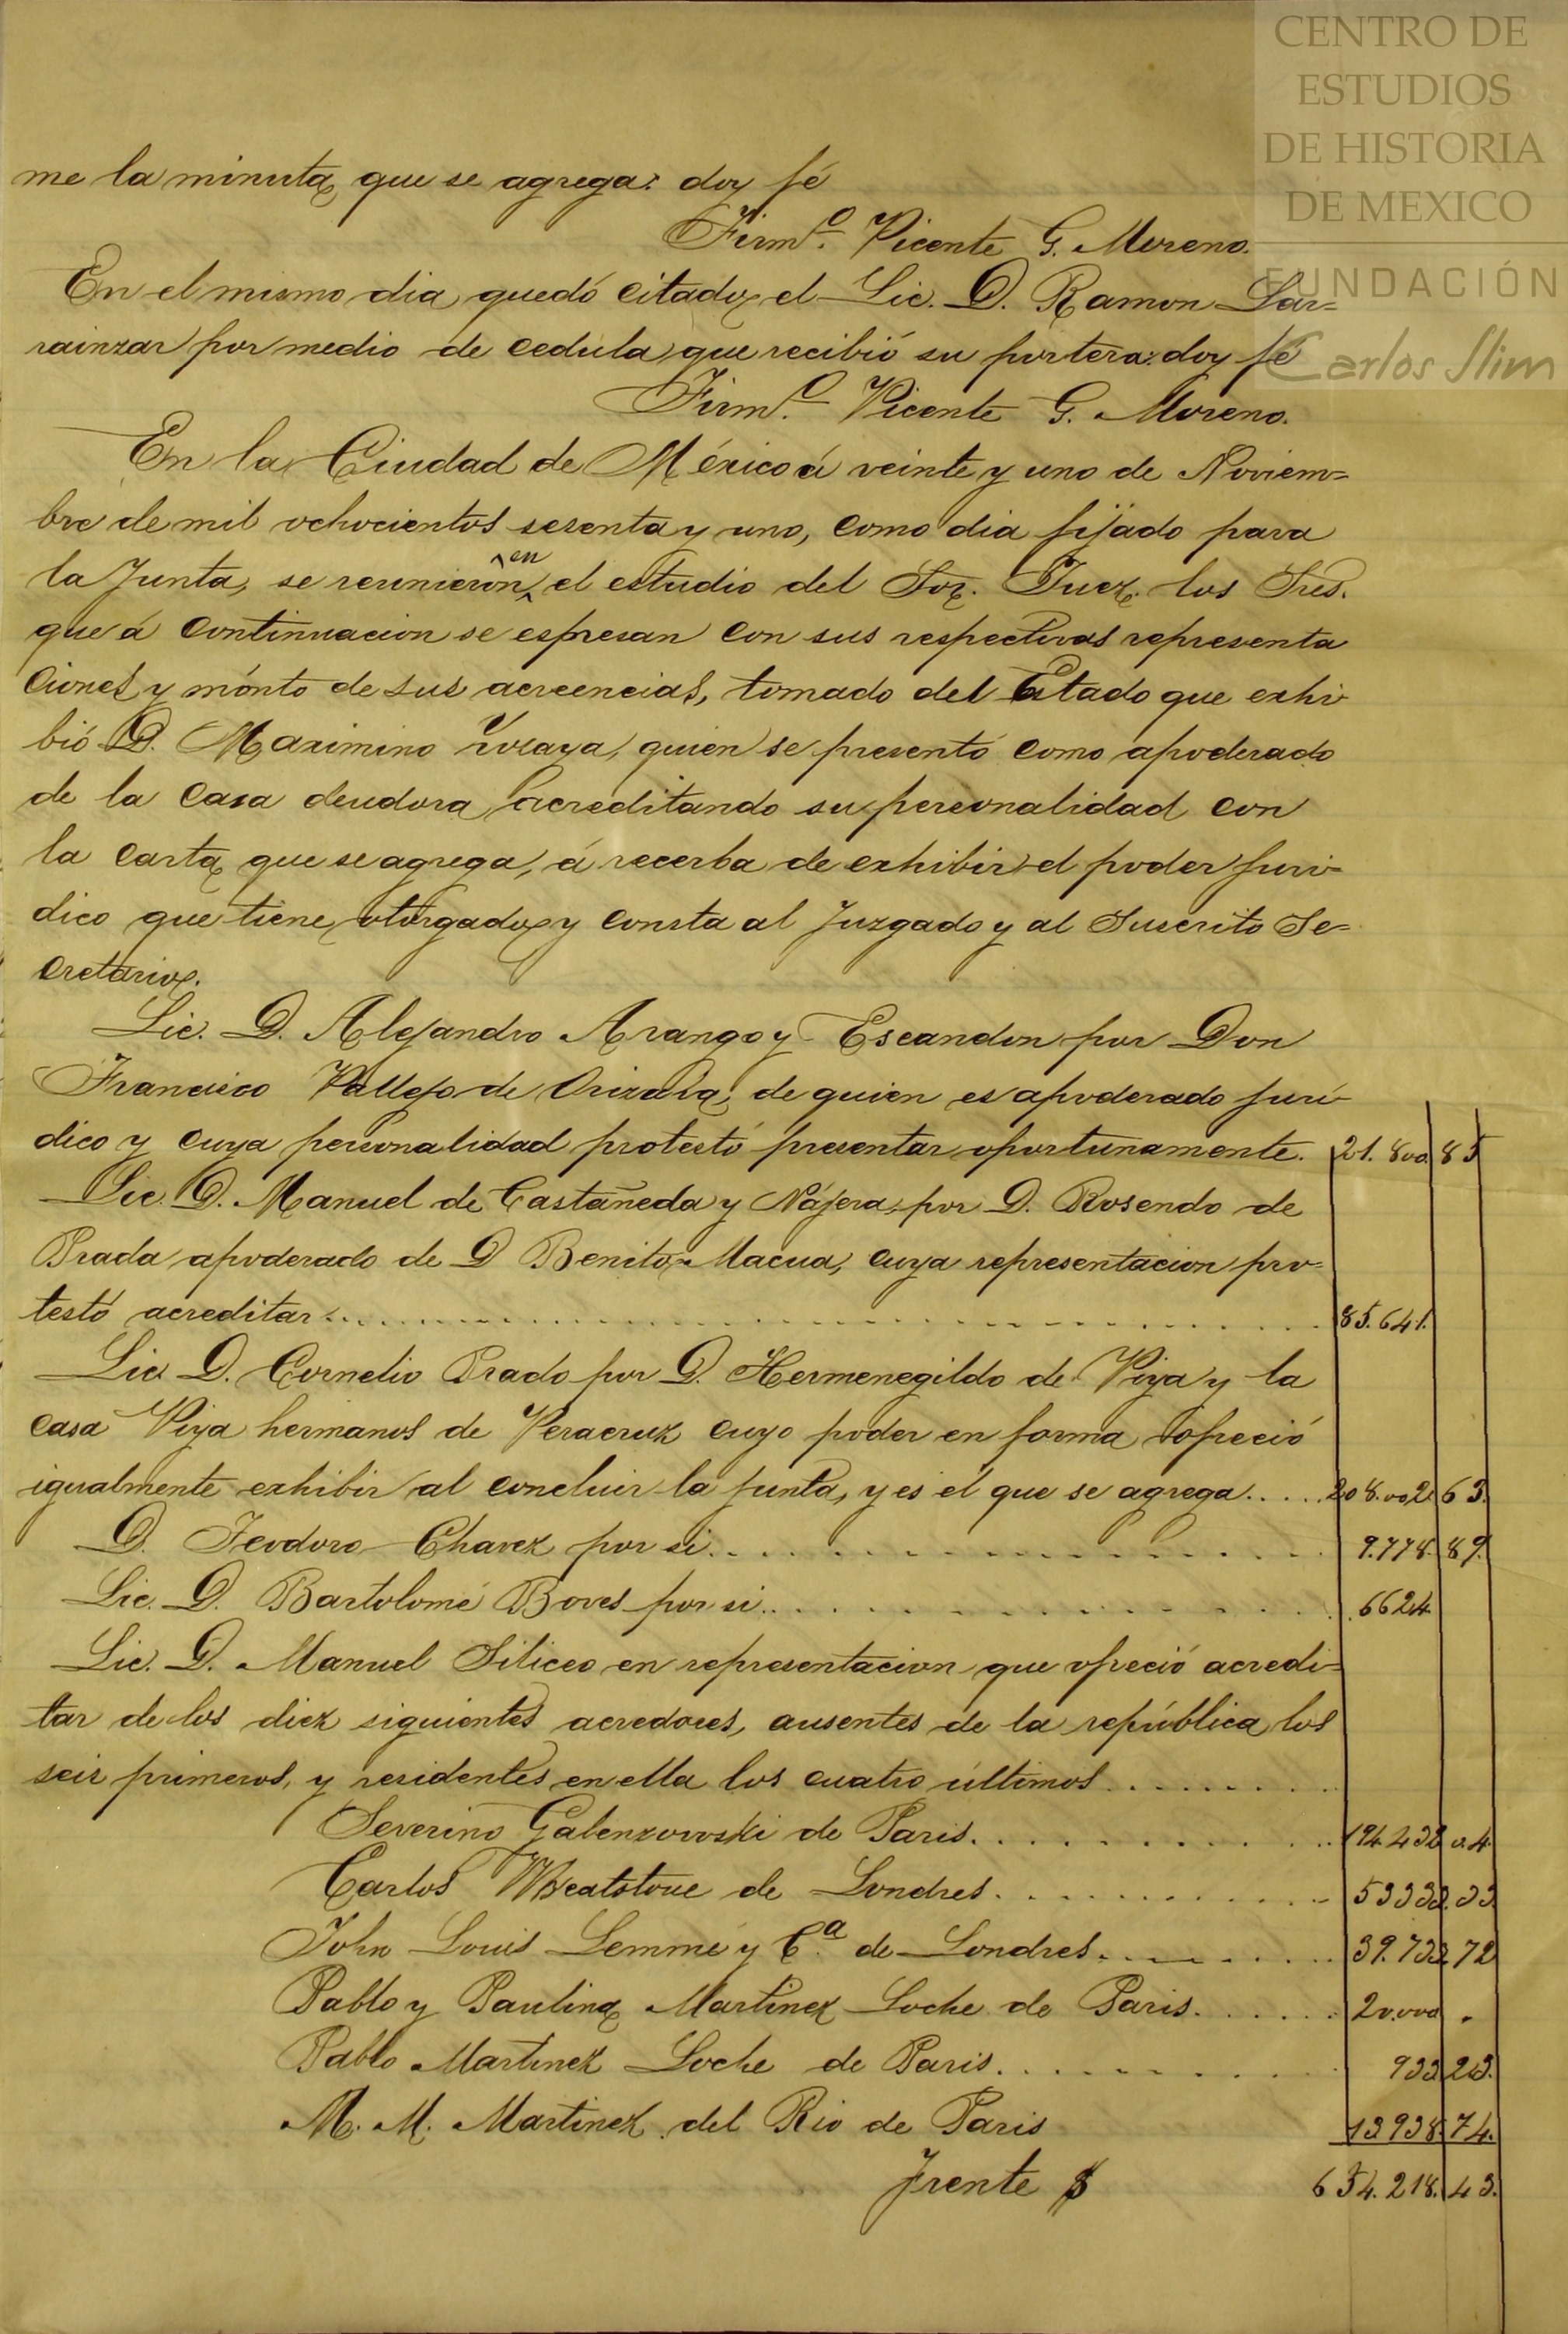 CENTRO DE
ESTUDIOS
DE HISTORIA
DE MEXICO
FUNDACIÓN
Carlos Slim
me la minuta que se agrega: doy fé
Firmº. Vicente G. Moreno.
En el mismo dia quedó citado el Lic. D. Ramon Lar=
rainzar por medio de cedula que recibió su portera: doy fé
Firmº. Vicente G. Moreno.
En la Ciudad de México á veinte y uno de Noviem=
bre de mil ochocientos sesenta y uno, como dia fijado para
la Junta, se reunieron en el estudio del Sor. Juez los Sres.
que á continuacion se espresan con sus respectivas representa
ciones y mónto de sus acreencias, tomado del Estado que exhi
bió D. Maximino Yocaya, quien se presentó como apoderado
de la casa deudora, acreditando su personalidad con
la carta que se agrega, á recerba de exhibir el poder juri=
dico que tiene otorgado y consta al Juzgado y al Suscrito Se=
cretario.
Lic. D. Alejandro Arango y Escandon por Don
Francisco Vallejo de Orizava, de quien es apoderado juri-
dico y cuya personalidad protestó presentar oportunamente. 21.800 85
Lic. D. Manuel de Castañeda y Nájera, por D. Rosendo de
Prada apoderado de D Benito Macua, cuya representacion pro=
testó acreditar 85.641.
Lic D. Cornelio Prado por D. Hermenegildo de Viya y la
casa Viya hermanos de Veracruz cuyo poder en forma ofreció
igualmente exhibir al concluir la junta, y es el que se agrega..... 208.002 63.
D. Teodoro Chavez por si 9.778. 89.
Lic. D. Bartolomé Boves por si 6624.
Lic. D. Manuel Siliceo en representacion que ofreció acredi=
tar de los diez siguientes acredores, ausentes de la república los
seis primeros, y residentes en ella los cuatro últimos
Severino Galenzowski de Paris 194.432 04.
Carlos Wheatstone de Londres 53333.33.
John Louis Lemmé y Cª. de Londres 39.733 72
Pablo y Paulina Martinez Loche de Paris 20.000 .
Pablo Martinez Loche de Paris 933 23.
M. M. Martinez del Rio de Paris 13938. 74.
Frente $ 654.218. 43.